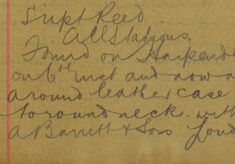 Supt Reed.
All Stations.
Found on Harpenden
on 6th inst and now a
around leather case
to round neck. with
a Barritt & Sons Lond